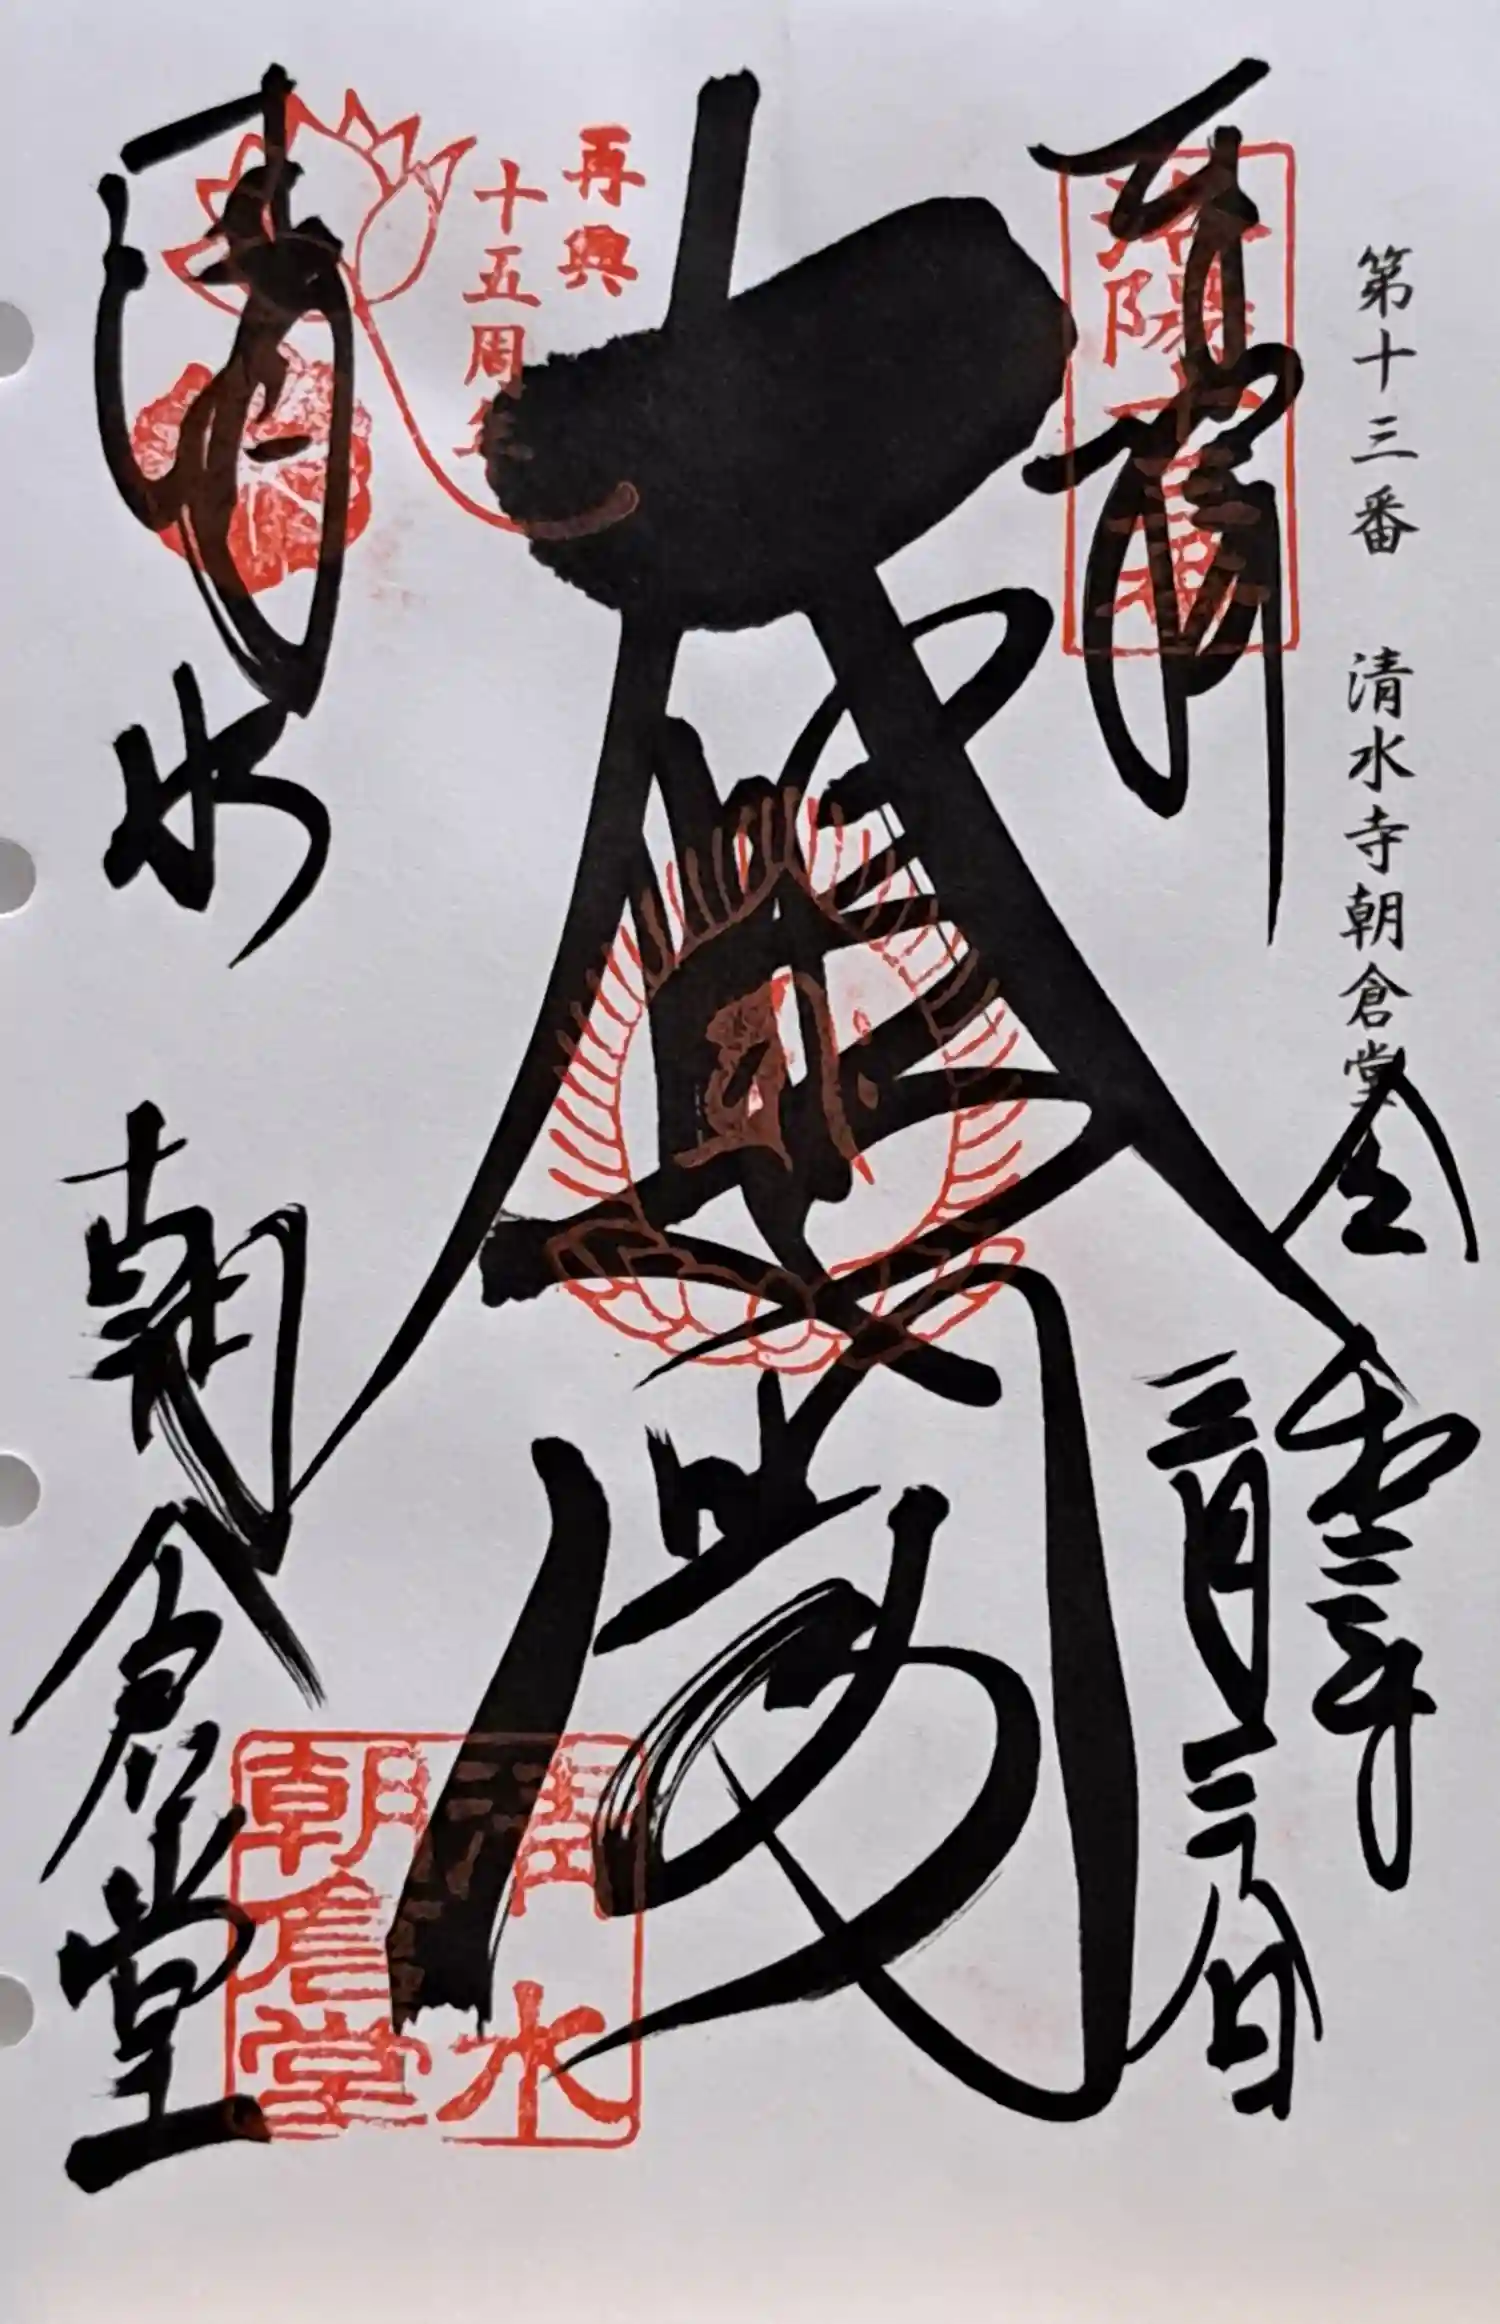 第十三番 清水寺朝倉堂
奉拝
洛陽
令和二年
三月
大悲閣
再興
十五周年
清水
朝倉堂
清水
朝倉堂